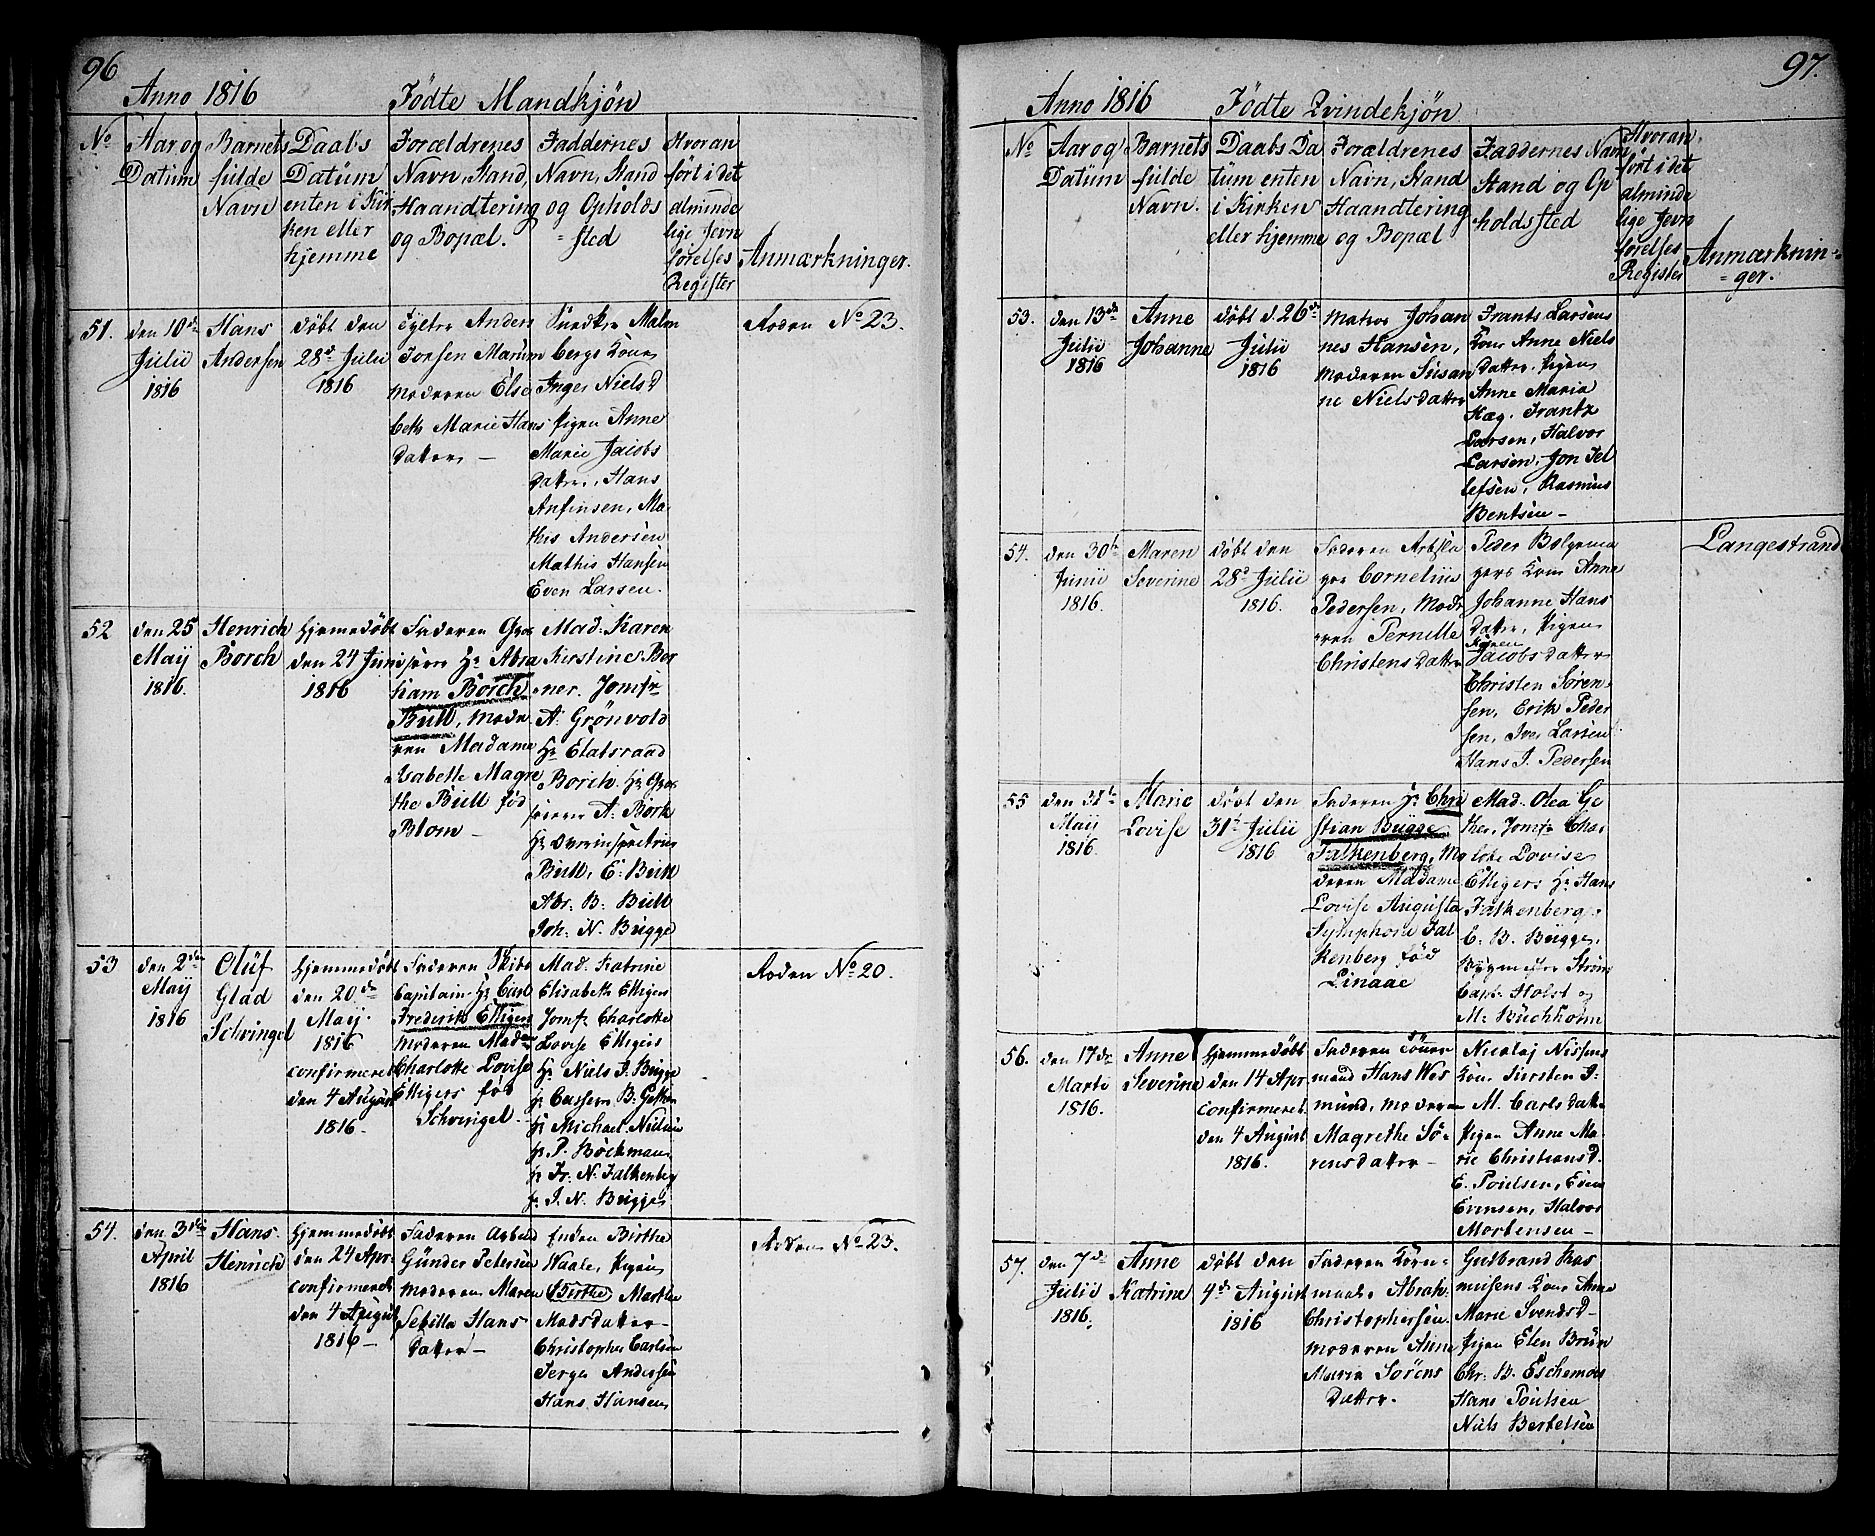 96
Anno 1816 Fødte Mandkjøn
No
Aar og
Datum
Barnets
fulde
Navn
Daabs
Datum
enten i Kir
ken eller
hjemme
Forældrenes
Navn, Stand,
Haandtering
og Bopæl.
Faddernes
Navn, Stand
og Opholds
= sted
Hvoran
ført i det
alminde
lige Jevn
førelses
Register
Anmærkninger.
51.
den 10de
Julii
1816
Hans
Andersen
døbt den
28de Julii
1816
Anders
Marum
Moderen Else
beth Marie Hans
Datter —
Snedker Malm
bergs Kone
Inger Nielsd
Pigen Anne
Marie Jacobs
Datter, Hans
Anfinsen, Ma
this Andersen
Mathis Hansen
Even Larsen.
No 23.
52
den 25
Maij
1816.
Henrich
Borch
hjemedøbt
den 24 Juni
1816
Faderen
Hr Abra
ham Borch
Bull, Mode
ren Madame
Isabelle Magre
the Bull fød
Blom —
Mad. Karen
Kirstine Bor
ner. Jomfr
A. Grönvold
Hr Etatsraad
Borch. Hr
A. Bork
Hr
Bull, E. Bull
Abr. B. Bull
Joh. N. Bugge
53
den 2den
Maij
1816
Oluf
Glad
Schvingel
hjemmedøbt
den 20de
Maij.
1816
confirmeret
den 4 August
1816.
Faderen Skibs
Capitain Hr Carl
Frederik Elligers
Moderen Madme
Charlotte Lovise
Elligers fød
Schvingel.
Mad. Katrine
Elisabeth Elligers
Jomfr Charlotte
Lovise Elligers
Hr Niels J. Bugge
Hr Michael Nielsen
hr P. Böckman
hr Fr. N. Falkenberg
hr J. N. Bugge
No 20.
54.
den 3die
April
1816
Hans
Henrich
hjemmedøbt
den 24 Apr.
confirmeret
den 4 August
1816 —
Faderen
Gunder Petersen
Moderen Maren
Sebilla Hans
Datter —
Enken Birthe
Waale, Pigen
(Birthe) Marthe
Madsdatter —
Christopher Carlsen
Andersen
Hans Hansen
No 23.
97.
Anno 1816 Fødte Qvindekjøn
No
Aar og
Datum
Barnets
fulde
Navn.
Daabs Da
tum enten
i Kirken
eller hjemme
Forældrenes
Navn, Stand
Haandtering
og Bopæl
Faddernes Navn
Stand og Op
holdssted
Hvoran
ført i det
alminde
lige Jevn
førelses
Register
Anmærknin=
= ger.
53.
den 13de
Julii
1816
Anne
Johanne
døbt d. 26de
Julii
1816
Matros Johan
nes Hansen,
Moderen Susan
ne Nielsdatter
Frants Larsens
Kone Anne Niels
Datter. Pigen
Anne Maria
Hæg. Frantz
Larsen, Halvor
Larsen, Jon Tel
lefsen, Rasmus
Bentsen —
54.
den 30te
Junii
1816.
Maren
Severine
døbt den
28de Julii
1816.
Faderen
Cornelius
Pedersen, Mod
eren Pernille
Christens Datter
Peder
Kone Anne
Johanne Hans
Datter, Pigen
Karen
Jacobs Datter
Christen Sören
sen, Erik Peder
sen, Iver Larsen
Hans J. Pedersen
Langestrand
55
den 31te
Maij
1816.
Marie
Lovise
døbt den
31te Julii
1816
Faderen Hr Chri
stian Bugge
Falkenberg, Mo
deren Madame
Lovise Augusta
Symphorie Fal
kenberg fød
Linaae
Mad. Olea Ge
ther, Jomfr Char
lotte Lovise
Elligers Hr Hans
Falkenberg,
C. B. Bugge,
Capt. Holst og
M. Buchholm
56.
den 17de
Marts
1816.
Anne
Severine
hjemmedøbt
den 14 Apr.
confirmeret
den 4 August
1816.
Faderen Tømmer
mand Hans Wes
mund, Moderen
Magrethe Sö=
rensdatter —
Nicolaj Nissens
Kone Kirsten J.
M. Carls datter
Pigen Anne Ma=
rie Christiansd.
E. Poulsen, Even
Evensen, Halvor
Mortensen —
57.
den 7de
Julii
1816.
Anne
Katrine
døbt den
4de August
1816
Faderen
Abrah.
Christophersen
Moderen Anne
Maria Sörens
Datter.
Gulbrand Ras
musens Kone Anne
Marie Svendsd —
Pigen Elen Brun
Chr. B. Eschemoes
Hans Poulsen
Niels Bertelsen